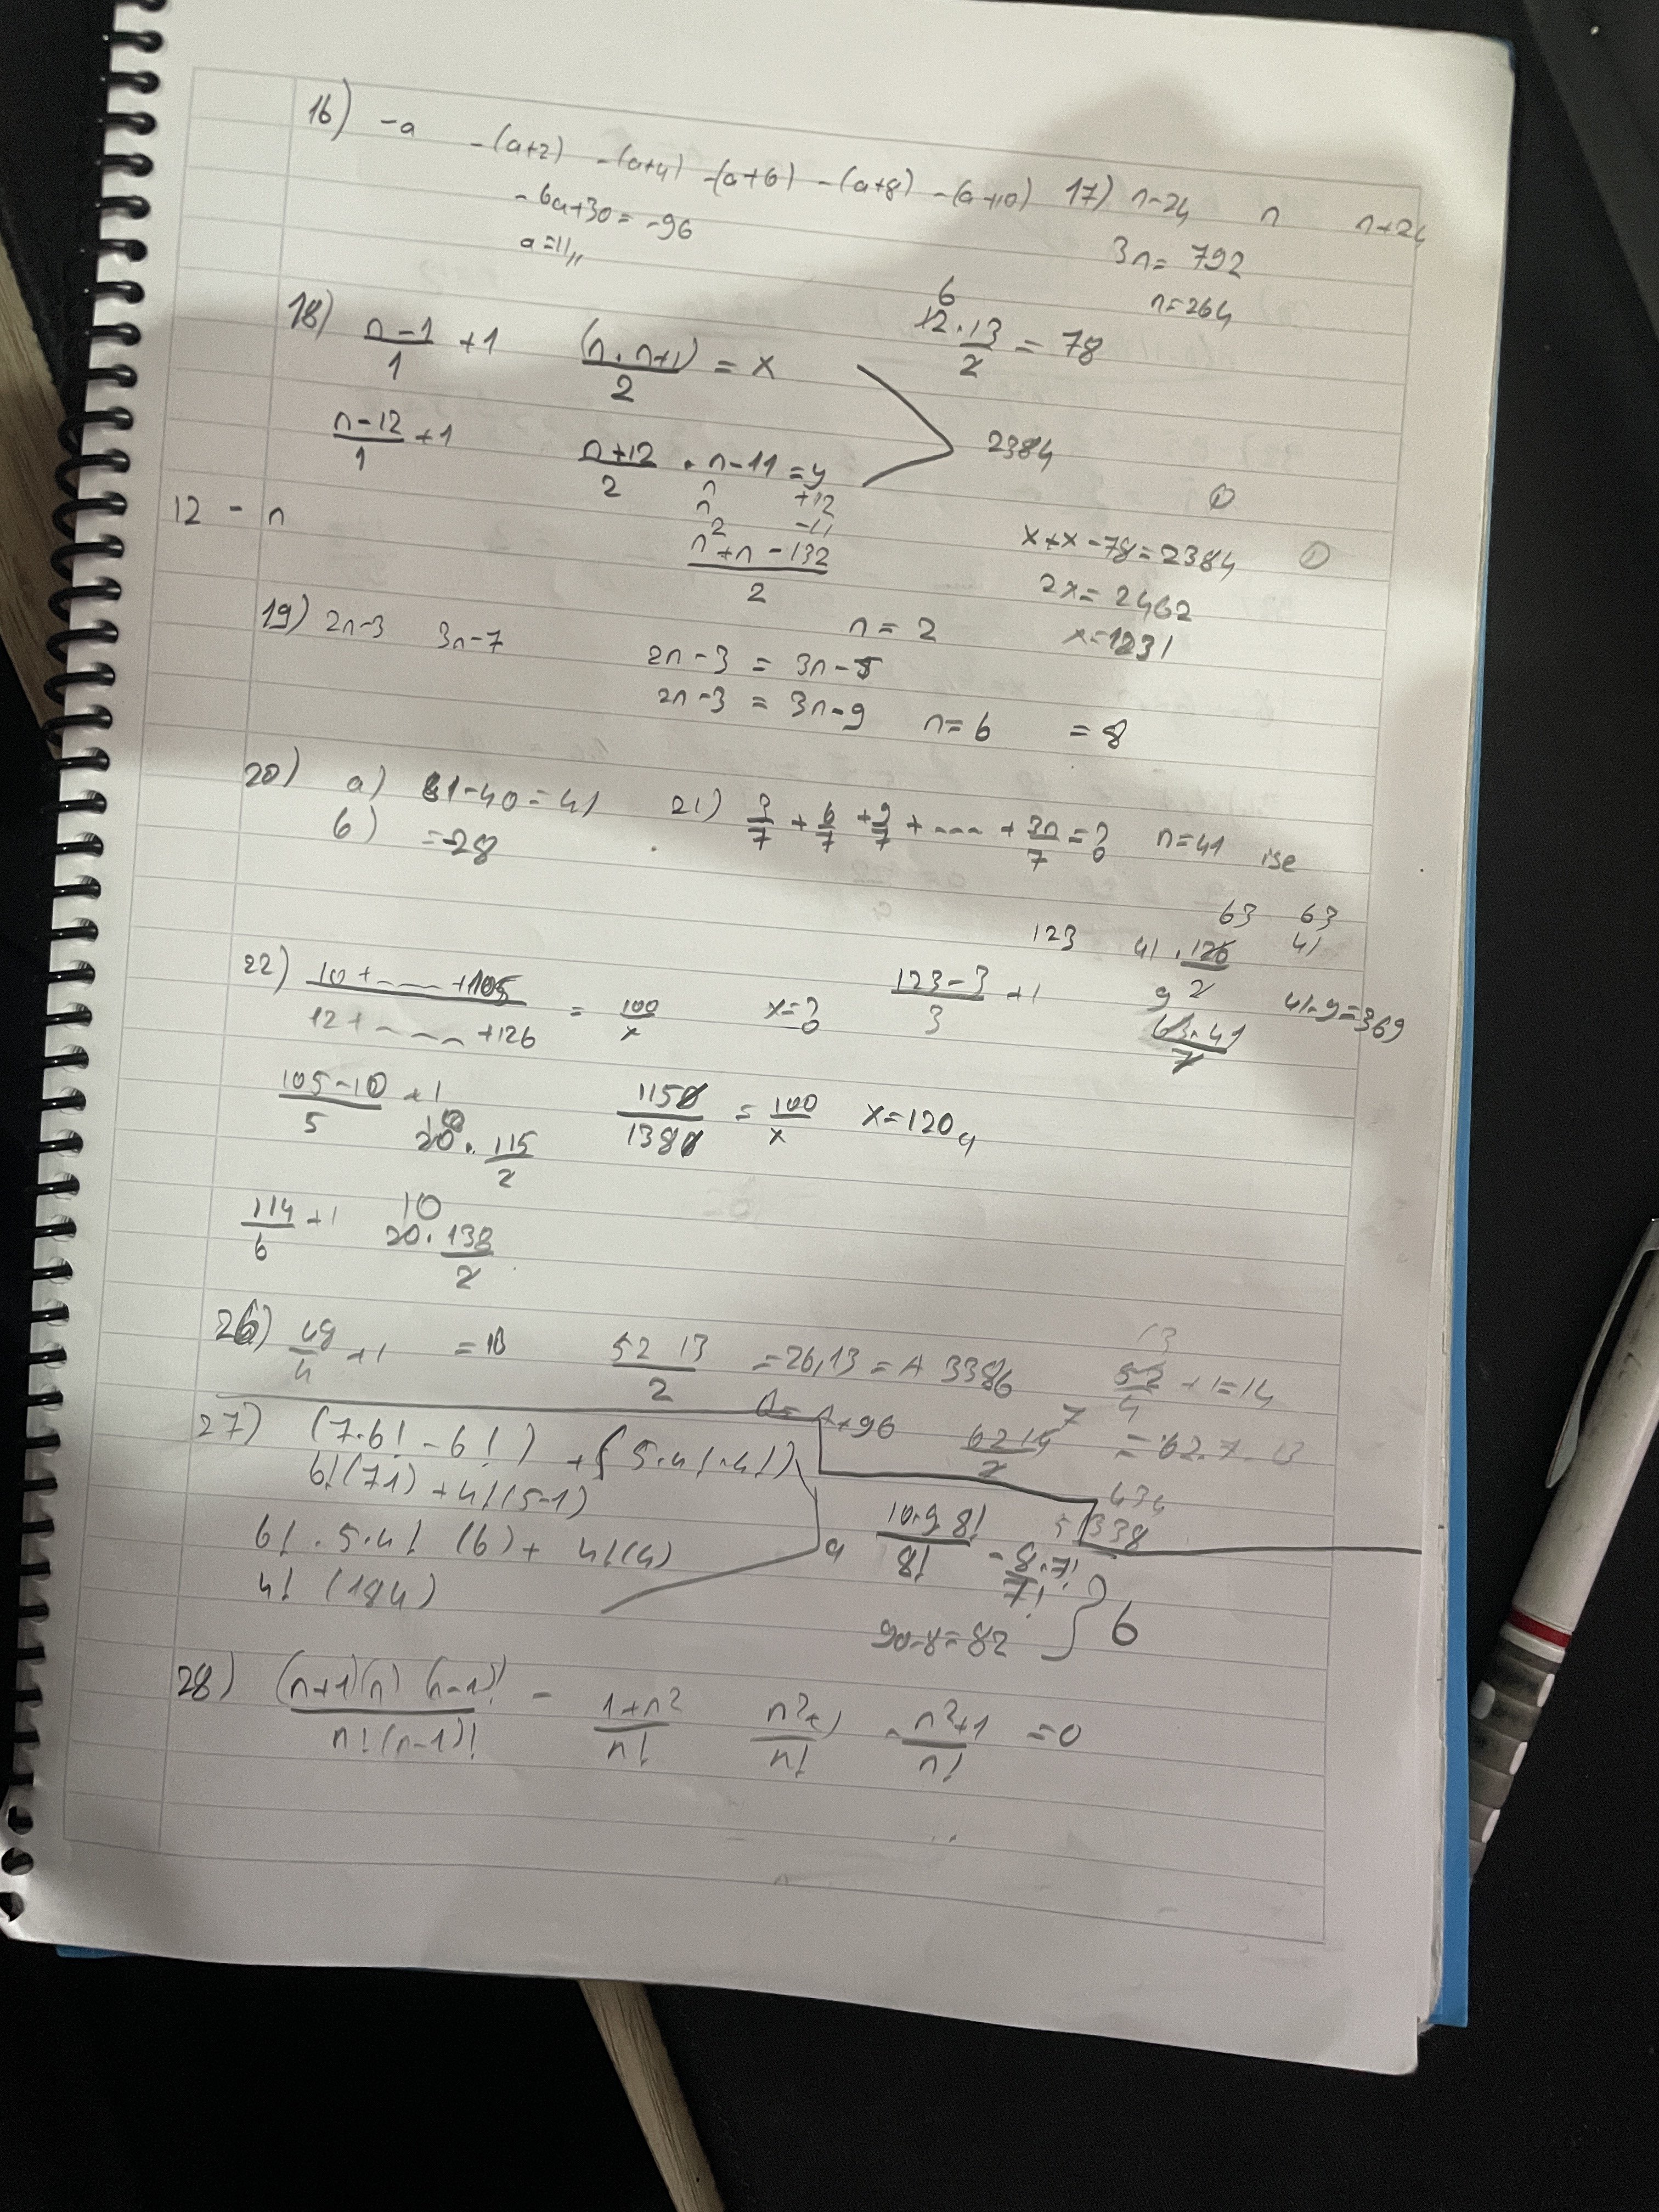 16) -a -(a+2) -(a+4) -(a+6) -(a+8) -(a+10)
-6a+30=-96
a=11,,
17) n-24 n n+24
3n= 792
n=264
18) n-1/1 +1 (n.n+1)/2 = x
6
12.13/2 = 78
n-12/1 +1 n+12/2 . n-11 = y
2384
n +12
n -11
12 - n
n²+n-132/2
x+x-78=2384
2x= 2462
x=1231
19) 2n-3 3n-7
n= 2
2n-3 = 3n-5
2n-3 = 3n-9 n=6 =8
20) a) 81-40=41
b) =-28
21) 3/7 + 6/7 + 9/7 + .... + 3n/7 = ? n=41 ise
63 63
123 41.126/2 41
123-3/3 +1
9
63.41/7
41.9=369
22) 10+....+105/12+....+126 = 100/x x=?
105-10/5 +1
10
20.115/2
1150/1380 = 100/x x=120
114/6 +1
10
20.138/2
26) 48/4 +1 =13 52 13/2 =26,13 = A 338
13
52/4 +1=14
A+96
7
62 14/2 = 62.7
434
338
27) (7.6!-6!) + (5.4!-4!)
6!(7-1) + 4!(5-1)
6! . 5.4! (6) + 4!(4)
4! (184)
a
10.9.8!/8! - 8.7!/7!
90-8=82
b
28) (n+1)(n) (n-1)!/n!(n-1)! - 1+n²/n! n²+1/n! - n²+1/n! =0